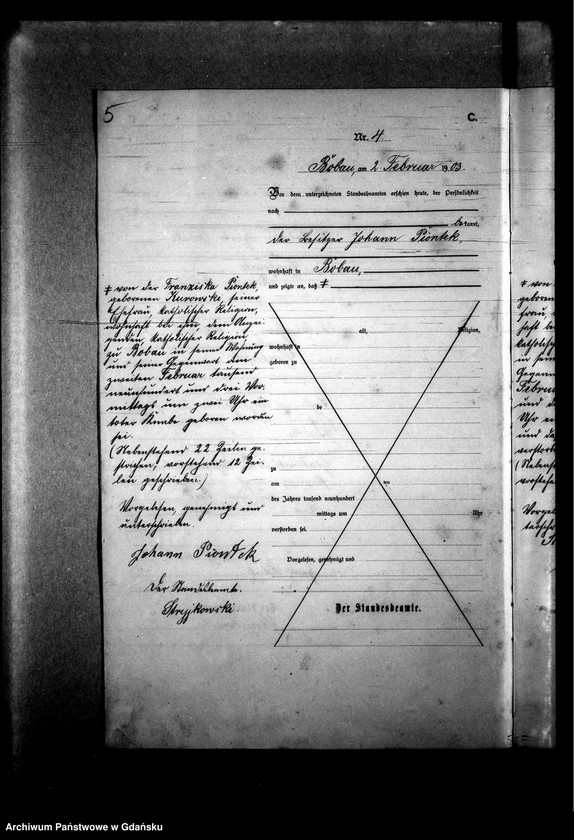 5
C.
Nr. 4
Bobau, am 2. Februar 1903.
Vor dem unterzeichneten Standesbeamten erschien heute, der Persönlichkeit
nach
bekannt,
der Besitzer Johann Piontek,
wohnhaft in Bobau,
und zeigte an, daß ‡
‡ von der Franziska Piontek,
geborenen Kurowski, seiner
Ehefrau, katholischer Religion,
wohnhaft bei ihm dem Anzei-
genden, katholischer Religion,
zu Bobau in seiner Wohnung
und seiner Gegenwart am
zweiten Februar tausend
neunhundert und drei Vor-
mittags um zwei Uhr ein
toter Knabe geboren worden
sei.
(Nebenstehend 22 Zeilen ge-
strichen, vorstehend 12 Zei-
len geschrieben.)
Vorgelesen, genehmigt und
unterschrieben.
Johann Piontek
Der Standesbeamte.
Stryjkowski
alt, Religion,
wohnhaft in
geboren zu
de
zu
am ten
des Jahres tausend neunhundert
mittags um Uhr
verstorben sei.
Vorgelesen, genehmigt und
Der Standesbeamte.
‡ von
geboren
haft be
katholisch
in sein
Februa
und d
Uhr e
verstorbe
(Nebenst
Vorgel
Archiwum Państwowe w Gdańsku